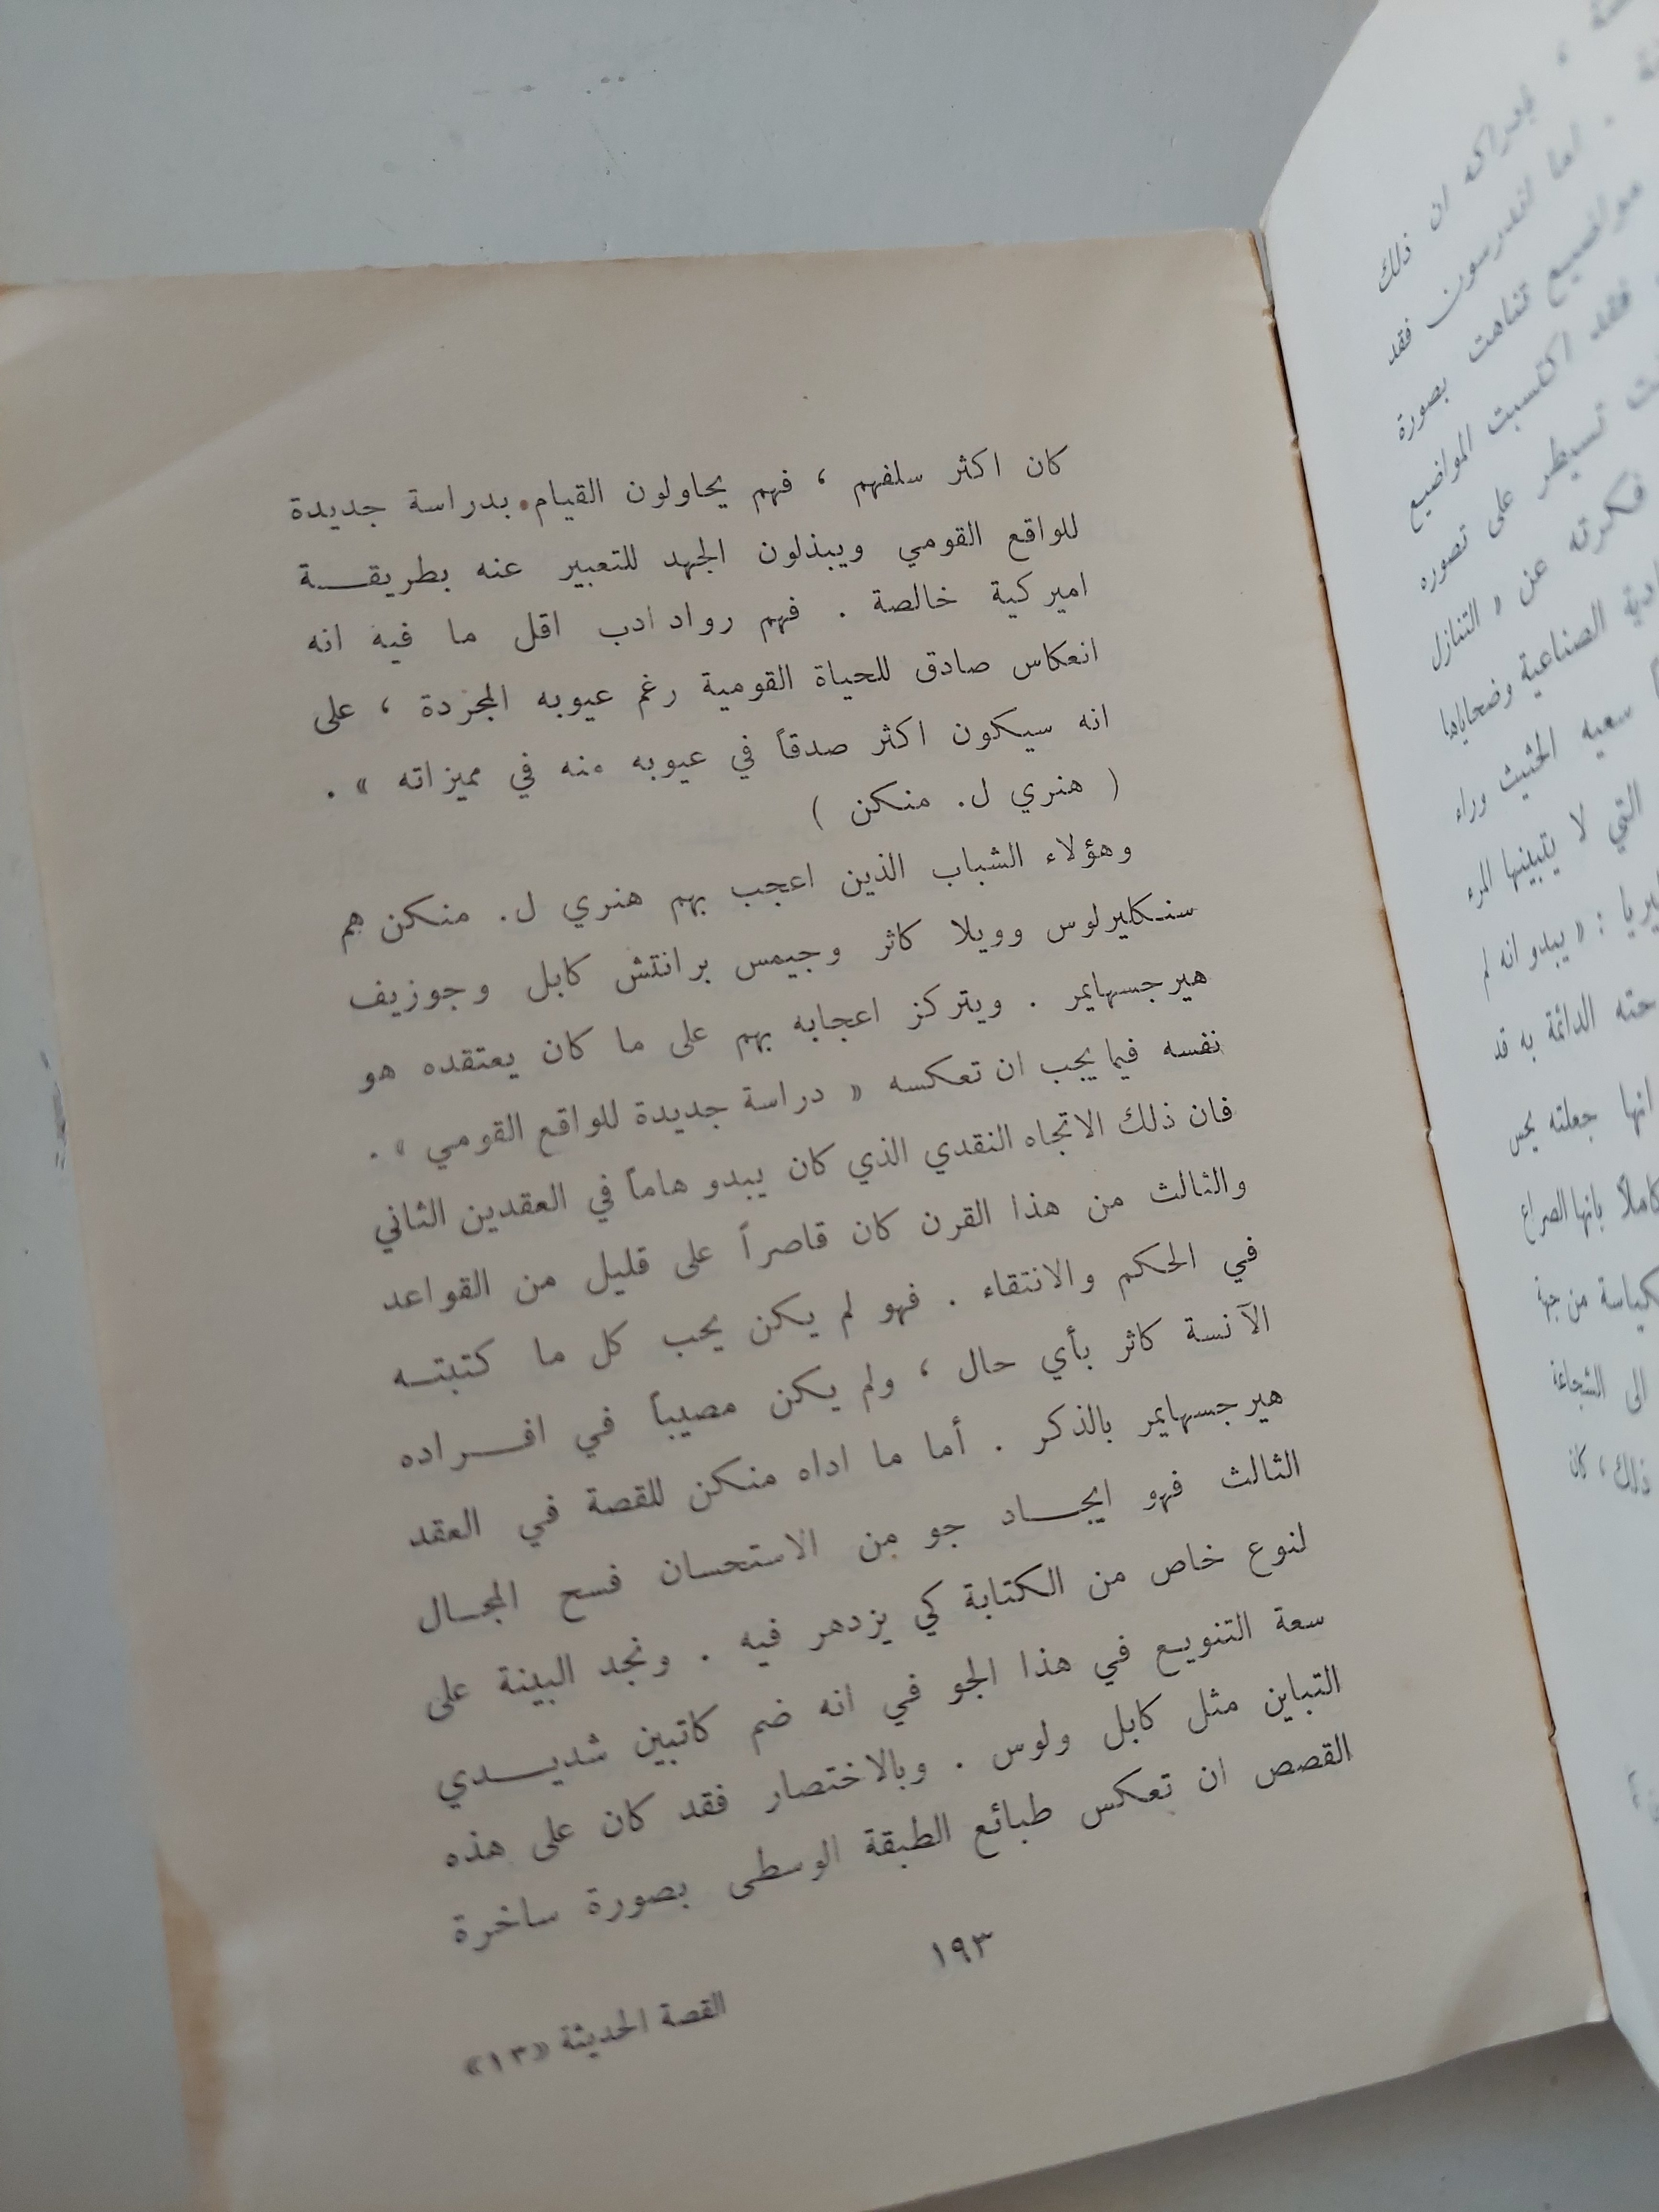 كان اكثر سلفهم ، فهم يحاولون القيام بدراسة جديدة
للواقع القومي ويبذلون الجهد للتعبير عنه بطريقـــة
اميركية خالصة . فهم رواد ادب اقل ما فيه انه
انعكاس صادق للحياة القومية رغم عيوبه المجردة ، على
انه سيكون اكثر صدقاً في عيوبه منه في مميزاته » .
( هنري ل. منكن )
وهؤلاء الشباب الذين اعجب بهم هنري ل. منكن هم
سنكليرلوس وويلا كاثر وجيمس برانتش كابل وجوزيف
هيرجسهايمر . ويتركز اعجابه بهم على ما كان يعتقده هو
نفسه فيما يجب ان تعكسه « دراسة جديدة للواقع القومي » .
فان ذلك الاتجاه النقدي الذي كان يبدو هاماً في العقدين الثاني
والثالث من هذا القرن كان قاصراً على قليل من القواعد
في الحكم والانتقاء . فهو لم يكن يحب كل ما كتبتـه
الآنسة كاثر بأي حال ، ولم يكن مصيباً في افـــراده
هيرجسهايمر بالذكر . أما ما اداه منكن للقصة في العقد
الثالث فهو ايجـــاد جو من الاستحسان فسح المجـال
لنوع خاص من الكتابة كي يزدهر فيه . ونجد البينة على
سعة التنويع في هذا الجو في انه ضم كاتبين شديـــدي
التباين مثل كابل ولوس . وبالاختصار فقد كان على هذه
القصص ان تعكس طبائع الطبقة الوسطى بصورة ساخرة
١٩٣
القصة الحديثة «١٣»
بادراكه ان ذلك
. اما اندرسون فقد
مواضيع تناهت بصورة
فقد اكتسبت المواضيع
تسيطر على تصوره
فكرته عن « التنازل
الصناعية وضحاياها
سعيه الحثيث وراء
التي لا يتبينها المرء
: « يبدو انه لم
الدائمة به قد
انها جعلته يحس
كاملاً بانها الصراع
من جهة
الى الشجاعة
ذلك ، كان